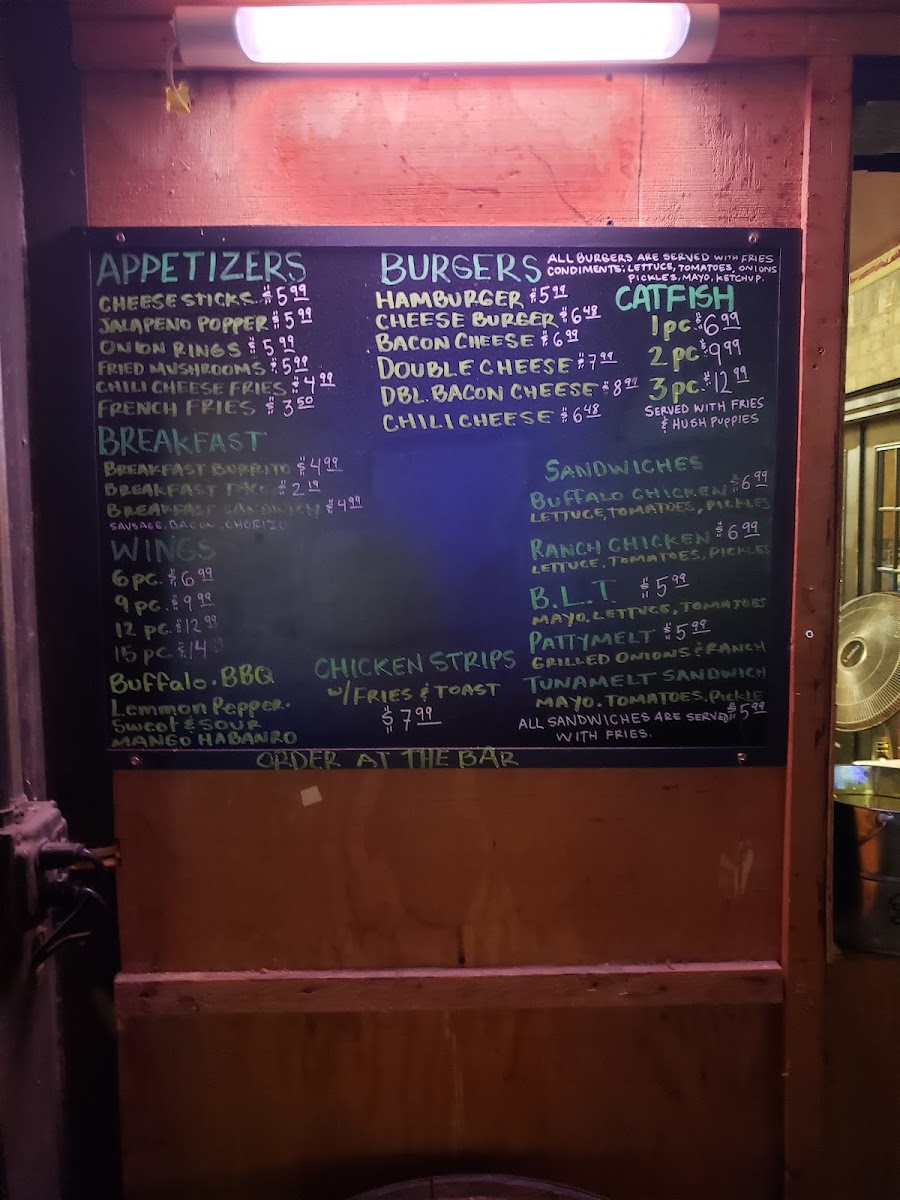 APPETIZERS
CHEESE STICKS $5.99
JALAPENO POPPER $5.99
ONION RINGS $5.99
FRIED MUSHROOMS $5.99
CHILI CHEESE FRIES $4.99
FRENCH FRIES $3.50
BREAKFAST
BREAKFAST BURRITO $4.99
BREAKFAST $2.19
BREAKFAST SANDWICH $4.99
SAUSAGE, BACON, CHORIZO
WINGS
6 pc. $6.99
9 pc. $9.99
12 pc. $12.99
15 pc. $14
Buffalo. BBQ
Lemmon Pepper.
Sweet & SOUR
MANGO HABANRO
BURGERS
ALL BURGERS ARE SERVED WITH FRIES
CONDIMENTS: LETTUCE, TOMATOES, ONIONS
PICKLES, MAYO, KETCHUP.
HAMBURGER $5.99
CHEESE BURGER $6.48
BACON CHEESE $6.99
DOUBLE CHEESE $7.99
DBL. BACON CHEESE $8.99
CHILI CHEESE $6.48
CATFISH
1 pc. $6.99
2 pc. $9.99
3 pc. $12.99
SERVED WITH FRIES
& HUSH PUPPIES
SANDWICHES
BUFFALO CHICKEN $6.99
LETTUCE, TOMATOES, PICKLES
RANCH CHICKEN $6.99
LETTUCE, TOMATOES, PICKLES
B.L.T $5.99
MAYO, LETTUCE, TOMATOES
PATTYMELT $5.99
GRILLED ONIONS & RANCH
TUNAMELT SANDWICH
MAYO. TOMATOES, Pickle
$5.99
ALL SANDWICHES ARE SERVED
WITH FRIES.
CHICKEN STRIPS
w/ FRIES & TOAST
$7.99
ORDER AT THE BAR